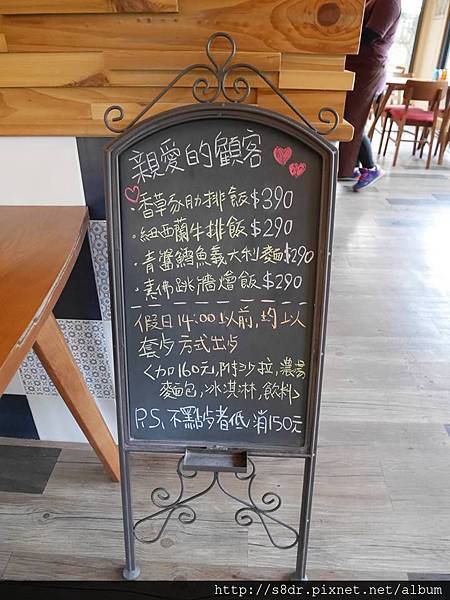 親愛的顧客
·香草豕肋排飯$390
·紐西蘭牛排飯$290
·青醬鱈魚義大利麵$290
·素佛跳牆燴飯$290
假日14:00以前,均以
套歺方式出歺
<加160元,附沙拉,濃湯
麵包,冰淇淋,飲料>
P.S. 不點歺者低消150元
http://s8dr.pixnet.net/album